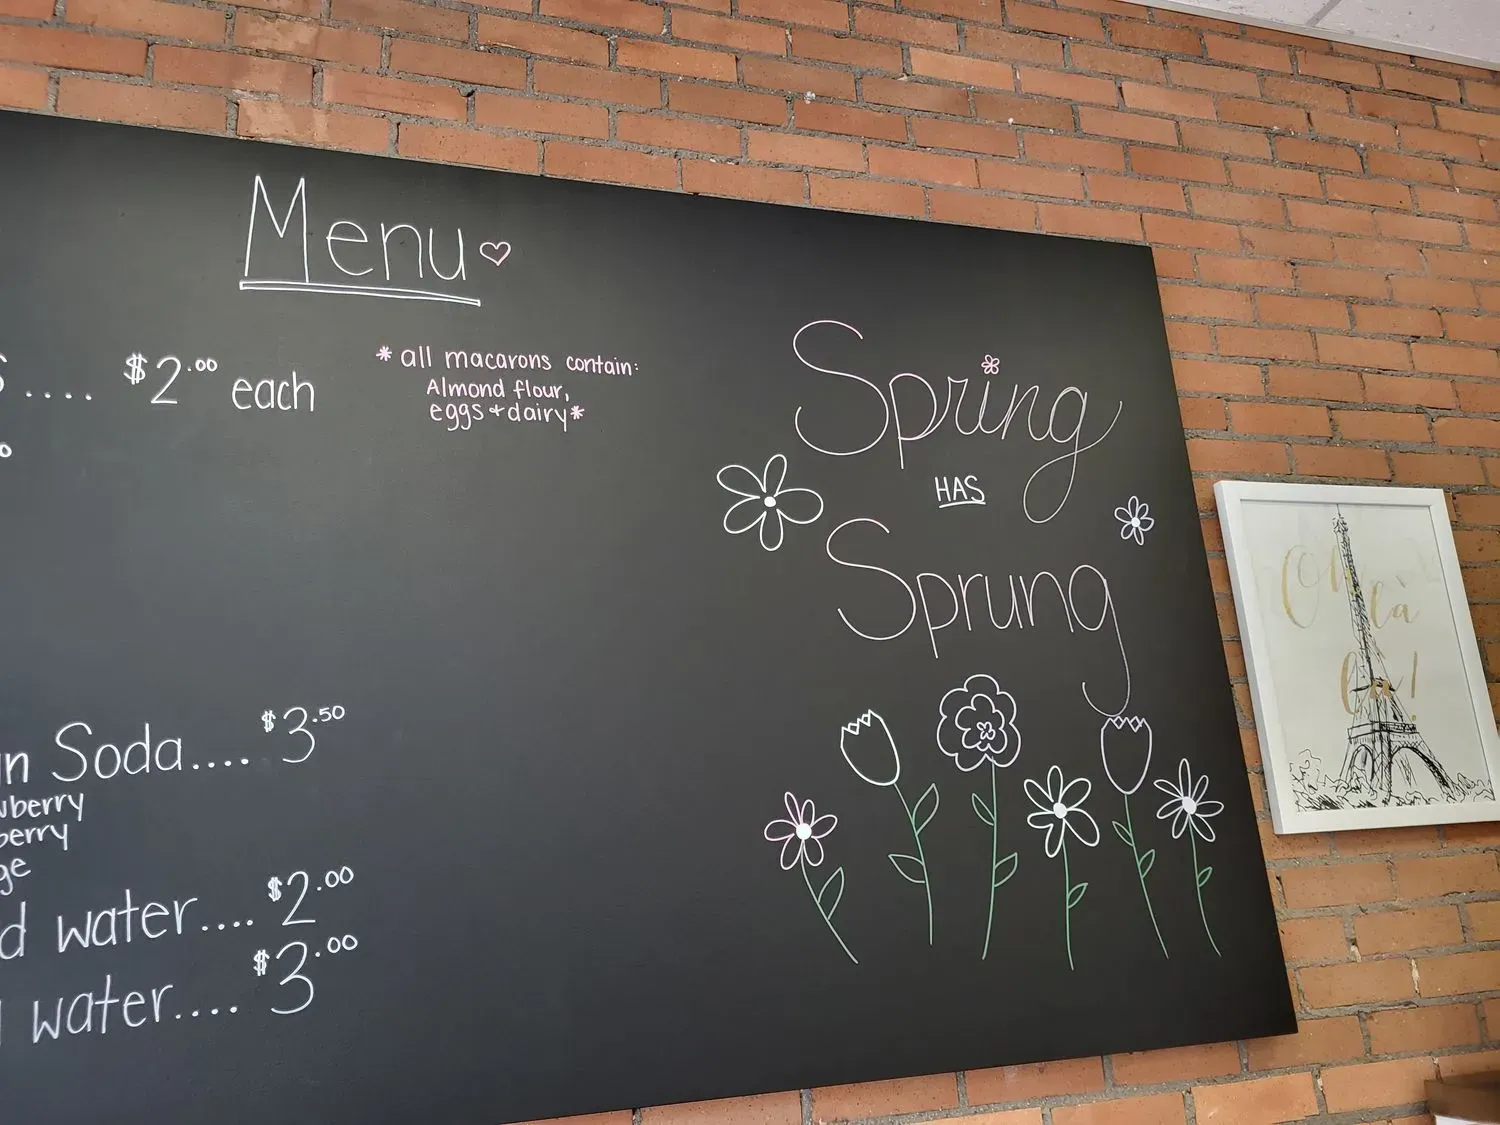 Menu
.... $2.00 each
* all macarons contain:
Almond flour,
eggs + dairy *
Soda.... $3.50
berry
water.... $2.00
water.... $3.00
Spring
HAS
Sprung
Oh
là
là!